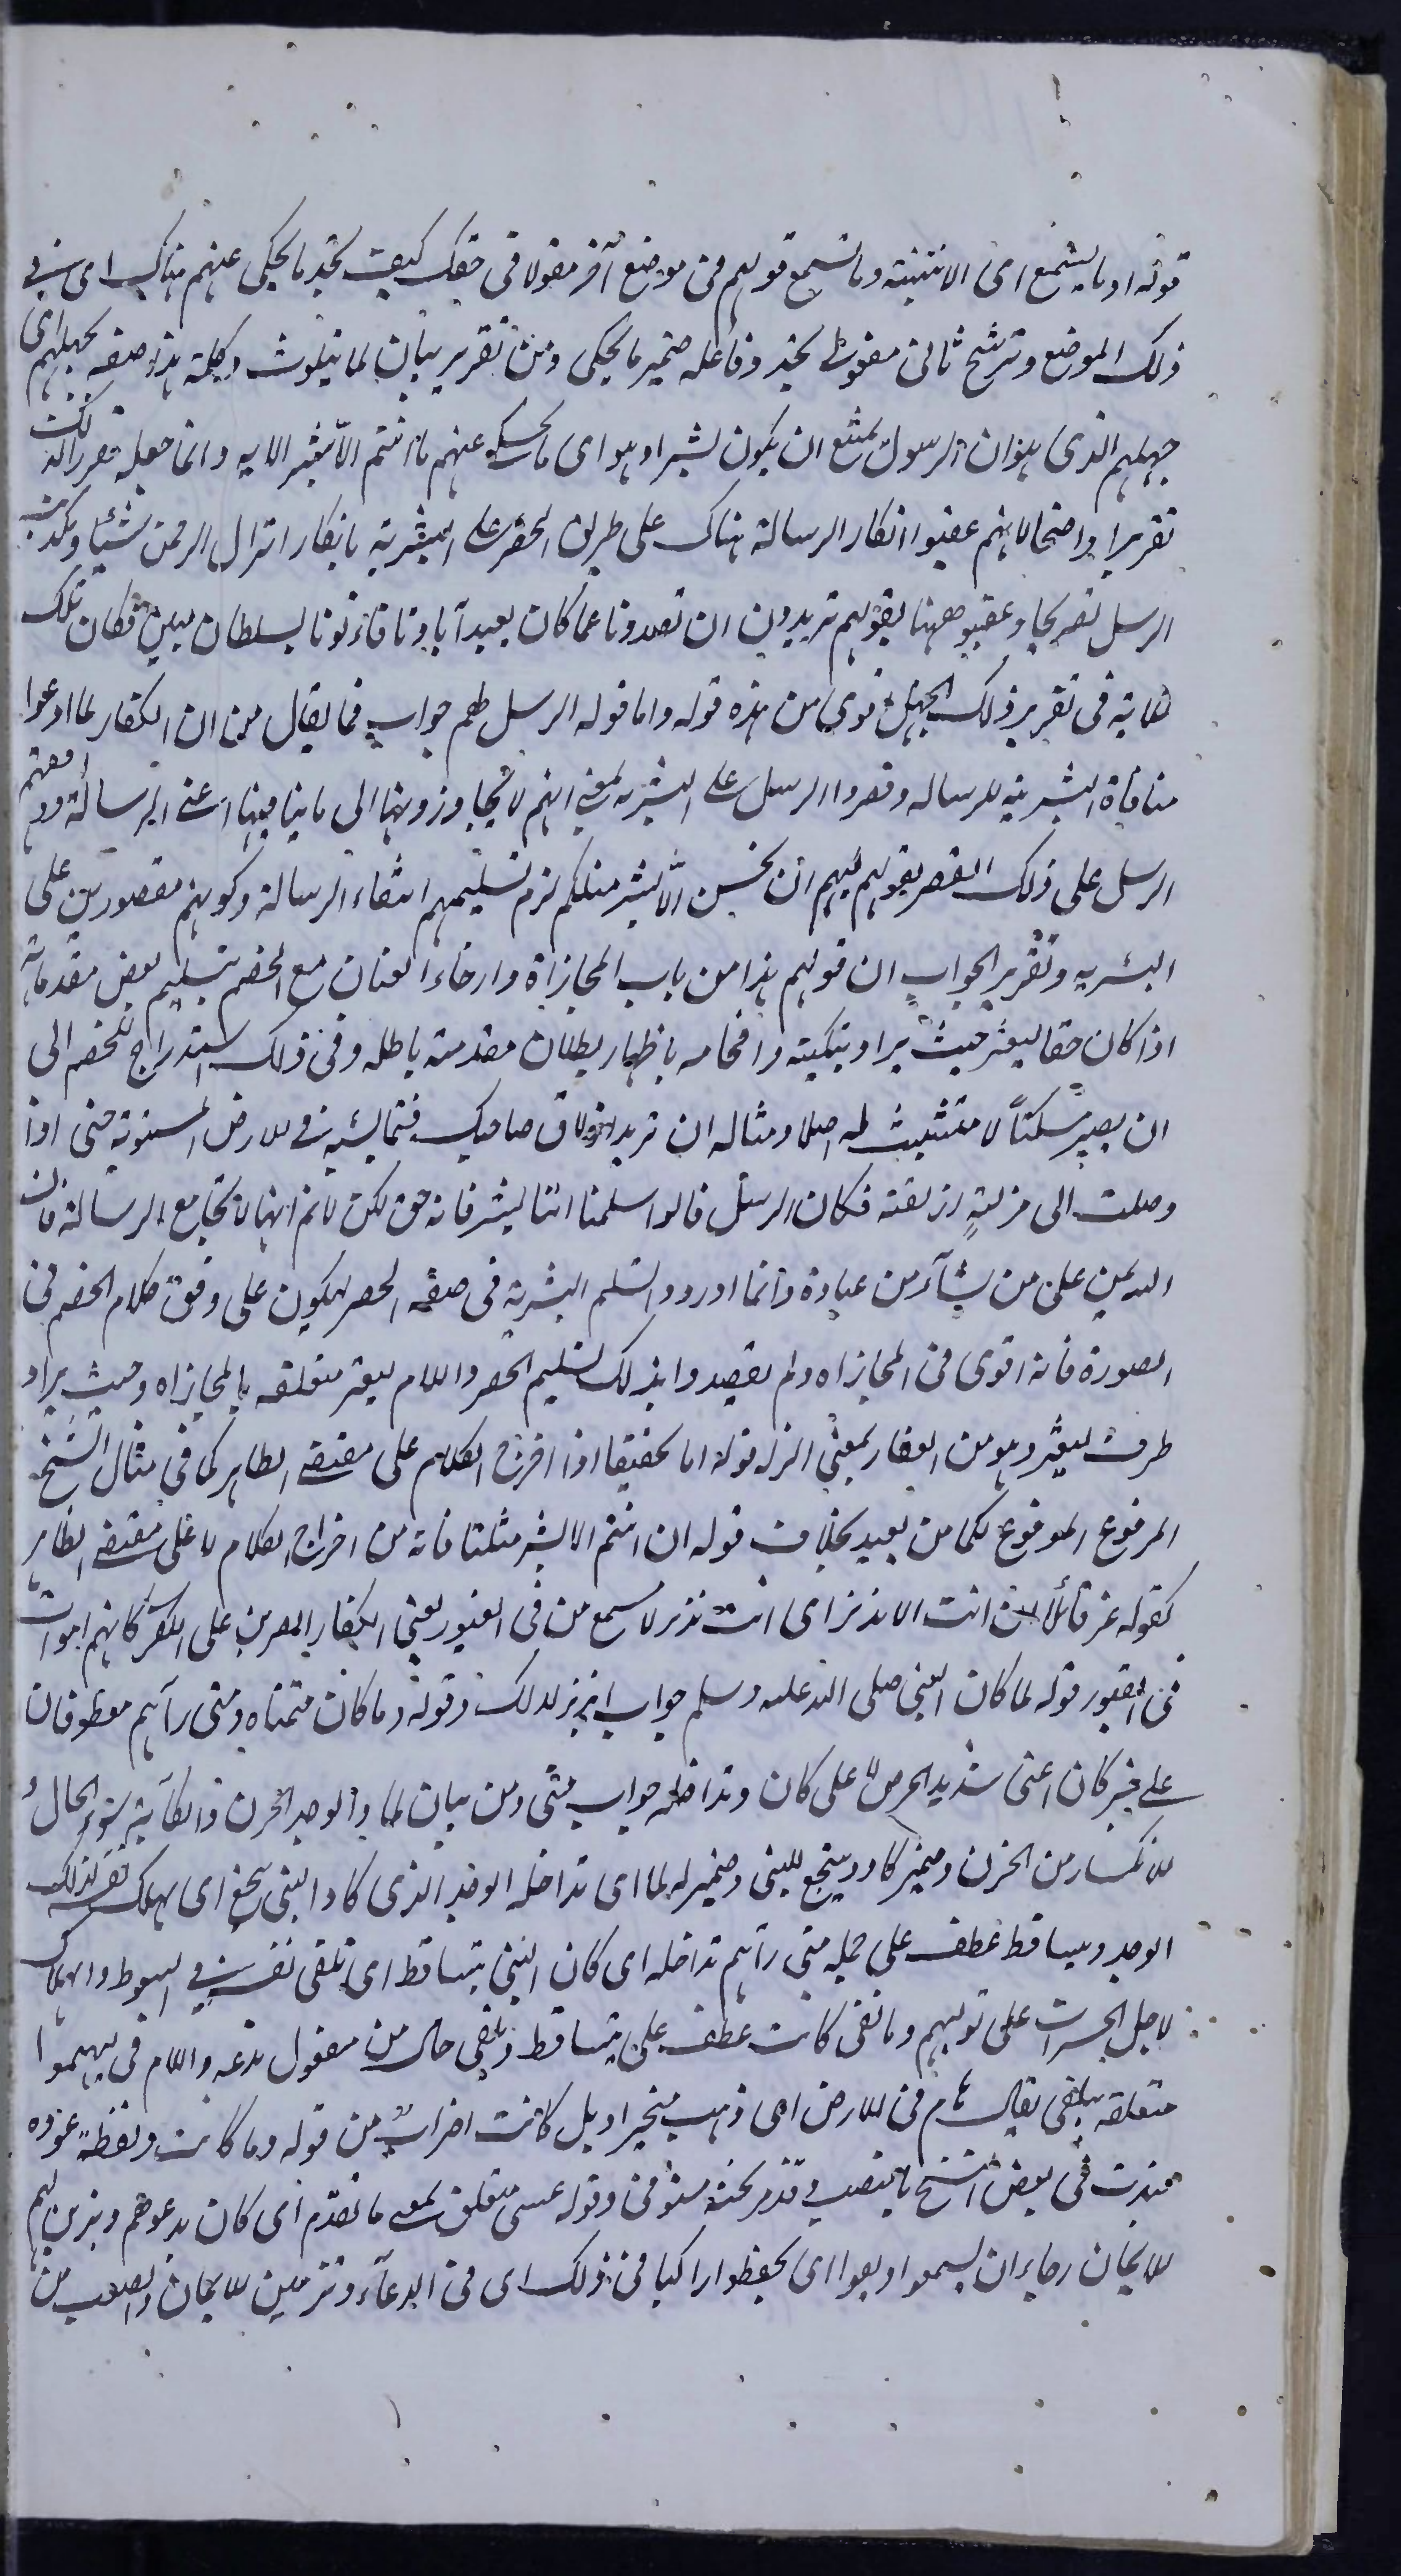 قوله او ما يسمع اى الاتنبيه وما تسمع قولهم فى موضع آخر مقولا فى حقك كيف تجد ما يحكى عنهم هناك اى فى
ذلك الموضع وترشح ثانى مفعولى تجد وفاعله ضمير ما يحكى ومن تقرير بيان لما يتلوث وكلمة هذه صفه لجهلهم اى
جهلهم الذى هو ان الرسول يمتنع ان يكون بشرا وهو اى ما يحكى عنهم ما انتم الا بشر الايه وانما جعله تقرير الذلك
تقريرا واضحا لانهم عقبوا انكار الرسالة هناك على طريق الحصر على البشرية بانكار انزال الرحمن شيئا وتكذيب
الرسل تصريحا وعقبوه ههنا بقولهم تريدون ان تصدونا عما كان يعبد آباؤنا فاتونا بسلطان مبين فكان تلك
الاية فى تقرير ذلك الجهل اقوى من هذه قوله واما قوله الرسل لهم جواب فما يقال من ان الكفار لما ادعوا
منافاة البشرية للرسالة وقصروا الرسل على البشرية بمعنى انهم لا يتجاوزونها الى ما ينافيها اعنى الرسالة ووافقهم
الرسل على ذلك القصر بقولهم لهم ان نحن الا بشر مثلكم لزم تسليمهم انتفاء الرسالة وكونهم مقصورين على
البشرية وتقرير الجواب ان قولهم هذا من باب المجازاة وارخاء العنان مع الخصم بتسليم بعض مقدماته
اذا كان حقا ليعثر حيث يراد تبكيته وافحامه باظهار بطلان مقدمته باطله وفى ذلك استدراج للخصم الى
ان يصير مسكتا لا متشبث له اصلا ومثاله ان تريد ازلاق صاحبك فتماشيه فى الارض المستوية حتى اذا
وصلت الى مزلة ازلقته فكان الرسل قالوا سلمنا اننا بشر فانه حق لكن لا نم انها لا تجامع الرسالة فان
الله يمن على من يشآء من عباده وانما اوردوا تسلم البشرية فى صفة الحصر ليكون على وفق كلام الخصم فى
الصورة فانه اقوى فى المجازاه ولم يقصدوا بذلك تسليم الحصر واللام ليعثر متعلقه بالمجازاه وحيث يراد
ظرف ليعثر وهو من العثار بمعنى الزلة قوله اما تحقيقا اذا اخرج الكلام على مقتضى الظاهر كما فى مثال الشيخ
المرفوع الموقوع لكما من بعيد بخلاف قوله ان انتم الا بشر مثلنا فانه من اخراج الكلام لا على مقتضى الظاهر
كقوله عز قائلا ان انت الا نذير اى انت نذير لا تسمع من فى القبور يعنى الكفار المصرين على الكفر كانهم اموات
فى القبور قوله لما كان النبى صلى الله عليه وسلم جواب لذلك وقوله وما كان متمناه ومتى رآهم معطوفان
على خبر كان اعنى شديد الحرص لا على كان وتداخله جواب متى ومن بيان لما والوجد الحزن والكآبة سوء الحال و
الانكسار من الحزن وضمير كاد ويبخع للنبى وضمير له لما اى تداخله الوجد الذى كاد النبى يبخع اى يهلك نفسه لذلك
الوجد ويساقط عطف على جمله متى رآهم تداخله اى كان النبى يتساقط اى تلقى نفسه فى السقوط والهلاك
لاجل الحسرات على توليهم وما تفى كانت عطف على يتساقط وتلقى حال من مفعول تدعه واللام فى ليهيموا
متعلقه بتلقى يقال هام فى الارض اى ذهب متحيرا وبل كانت اضراب من قوله وما كانت ولفظة عنده
فى بعض النسخ بالنصب وقد مر بحثه مستوفى وقوله عسى متعلق بمعنى ما تقدم اى كان يدعوهم ويزين لهم
الايمان رجاء ان يسمعوا ويعوا اى يحفظوا راكبا فى ذلك اى فى الدعآء وتزيين الايمان والصعب من